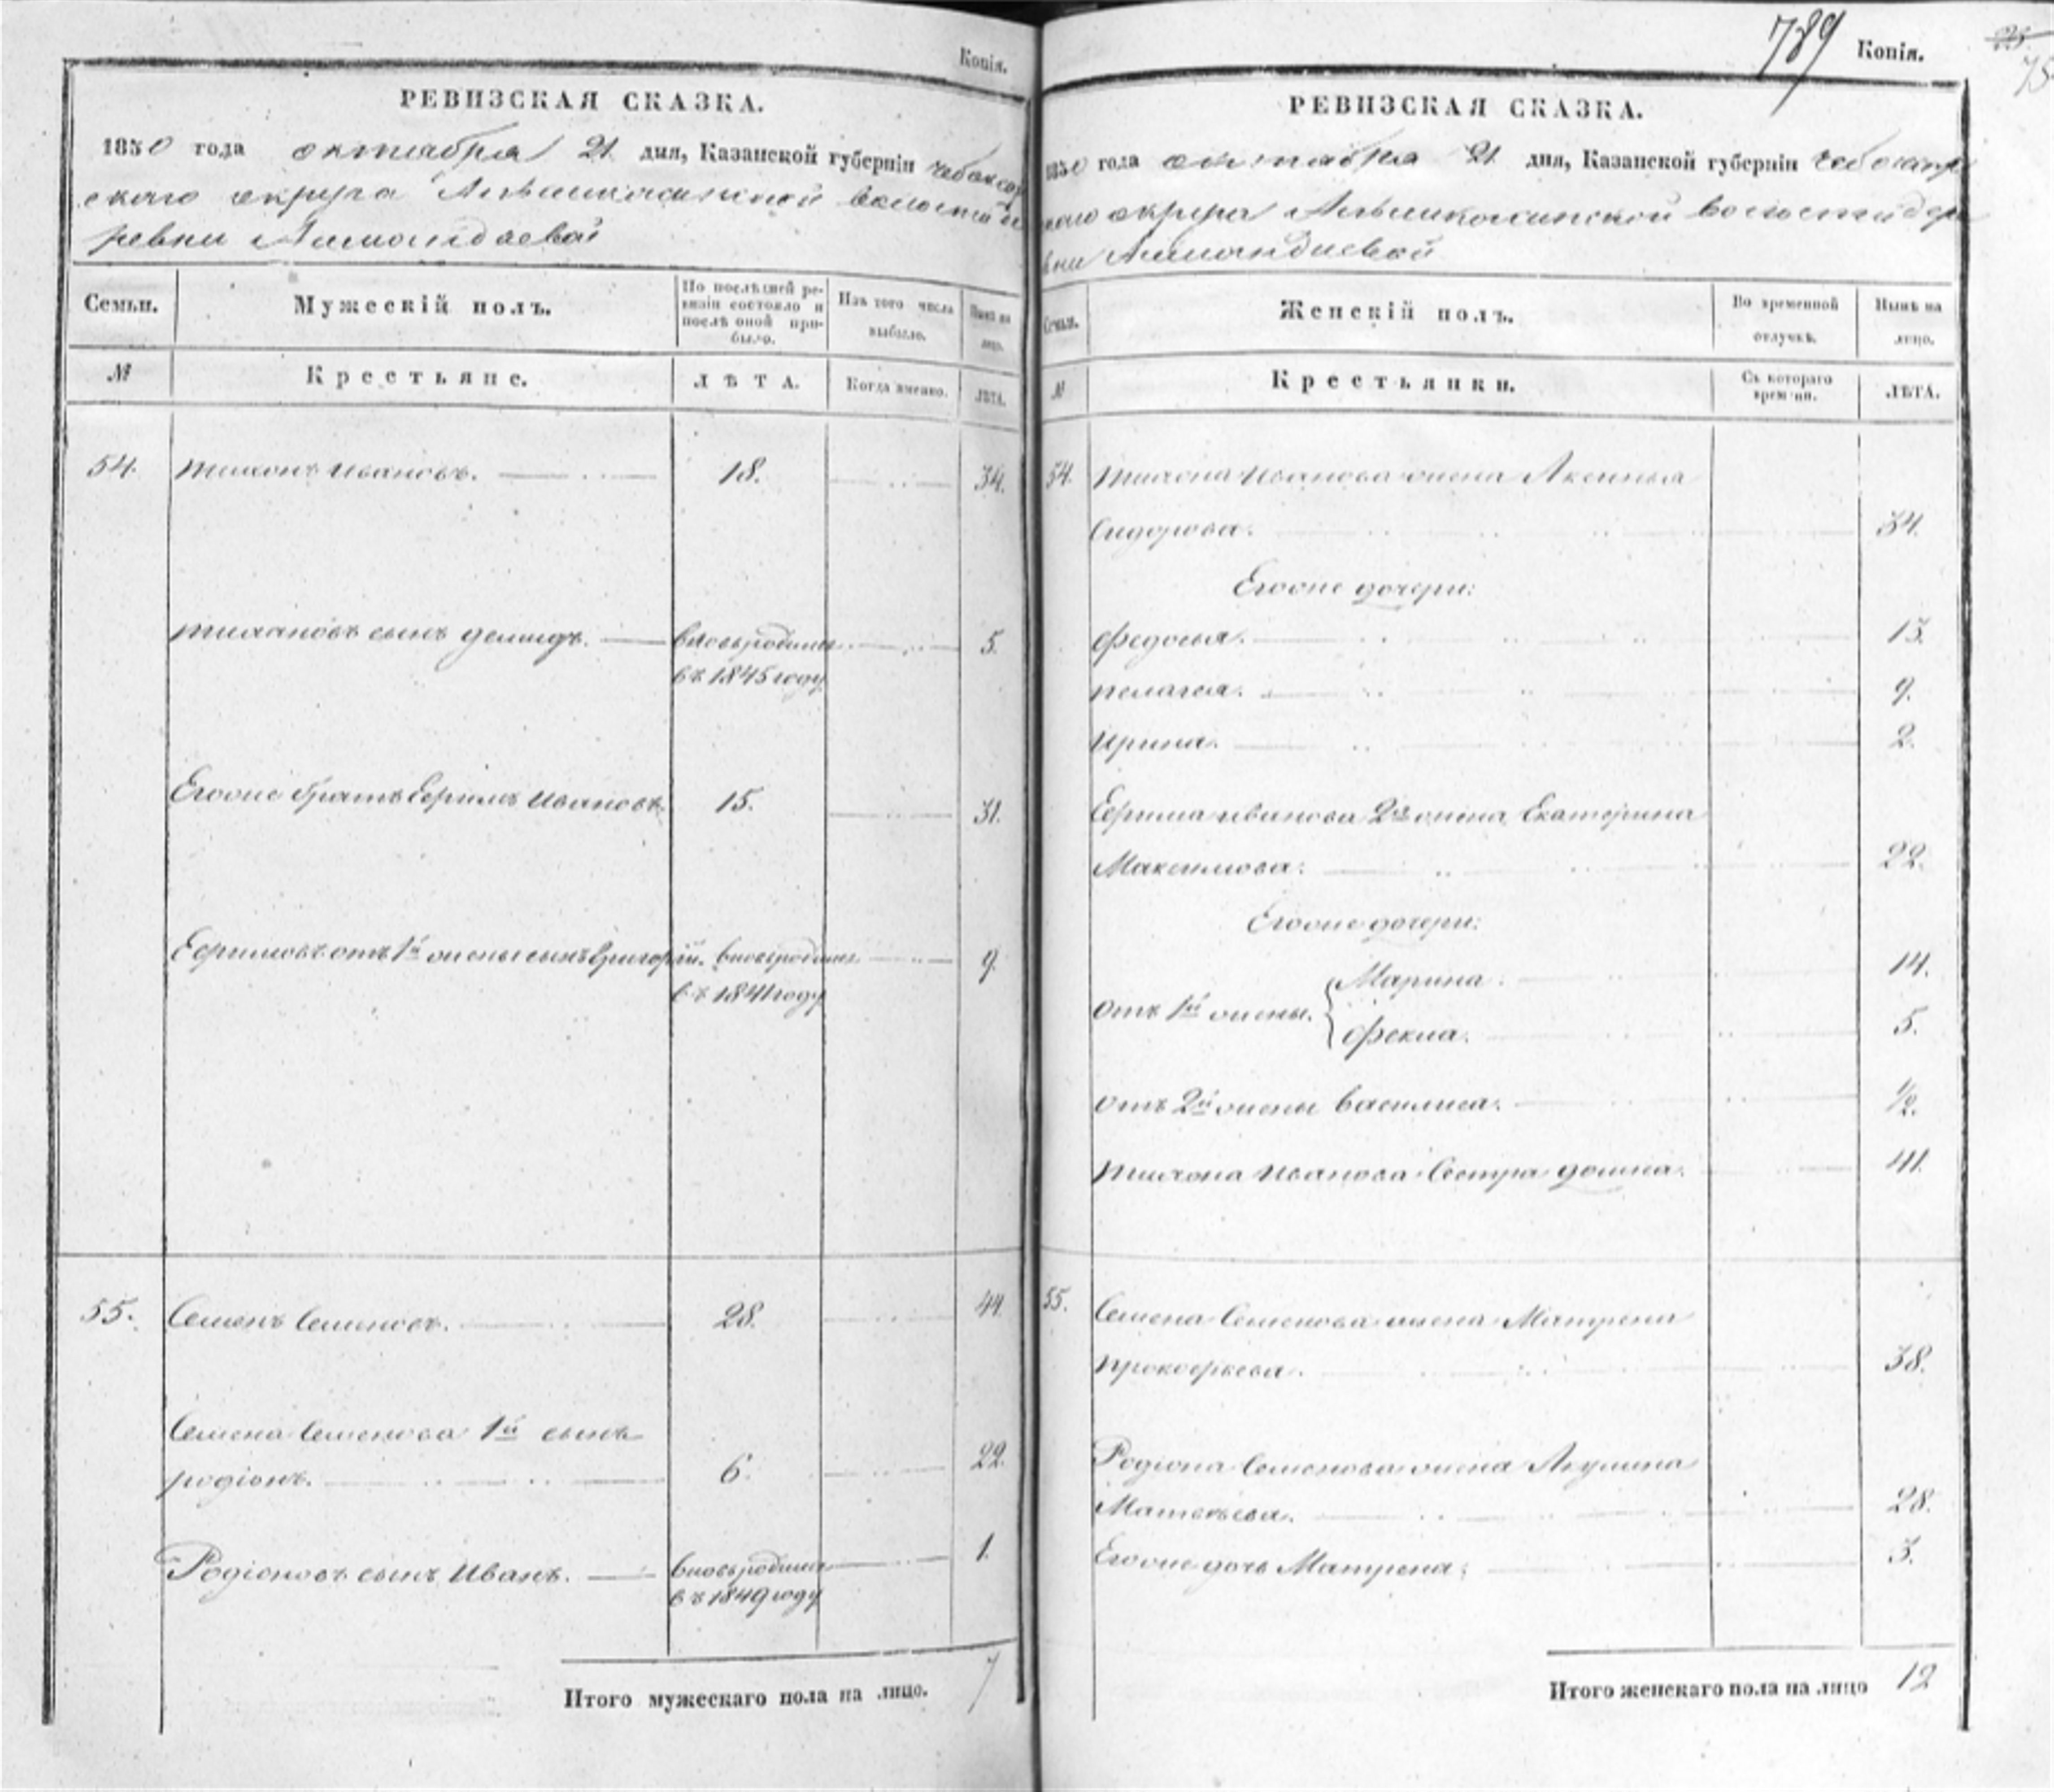 Копія.
РЕВИЗСКАЯ СКАЗКА.
1850 года октября 21 дня, Казанской губерніи Чебоксар
скаго округа волости де
ревни
Семьи.
Мужескій полъ.
По послѣдней ре-
визіи состояло и
послѣ оной при-
было.
Изъ того числа
выбыло.
Нынѣ на
лицо.
№
Крестьяне.
ЛѢТА.
Когда именно.
ЛѢТА.
54. Тихонъ Ивановъ. 18. 34.
Тихоновъ сынъ Демидъ. вновьродился 5.
въ 1845 году
Егоже братъ Ефимъ Ивановъ 15. 31.
Ефимовъ отъ 1й жены сынъ Григорій. вновьродился 9.
въ 1841 году
55. Семенъ Семеновъ. 28. 44.
Семена Семенова 1й сынъ
родіонъ. 6. 22.
Родіоновъ сынъ Иванъ. вновьродился 1.
въ 1849 году
Итого мужескаго пола на лицо. 7
789 Копія.
25
75
РЕВИЗСКАЯ СКАЗКА.
1850 года октября 21 дня, Казанской губерніи Чебоксар
скаго округа волости дере
вни
Семьи.
Женскій полъ.
Во временной
отлучкѣ.
Нынѣ на
лицо.
№
Крестьянки.
Съ котораго
времени.
ЛѢТА.
54. Тихона Иванова жена Аксинья
Сидорова. 34.
Егоже дочери:
Федосья. 13.
пелагея. 9.
Ирина. 2.
Ефима иванова 2я жена Екатерина
Максимова. 22.
Егоже дочери:
отъ 1й жены. { Марина. 14.
Фекла. 5.
отъ 2й жены Василиса. 1/2.
Тихона Иванова Сестра домна. 41.
55. Семена Семенова жена Матрена
прокофьева. 38.
Родіона Семенова жена Акулина
Матвѣева. 28.
Егоже дочь Матрена. 3.
Итого женскаго пола на лицо 12